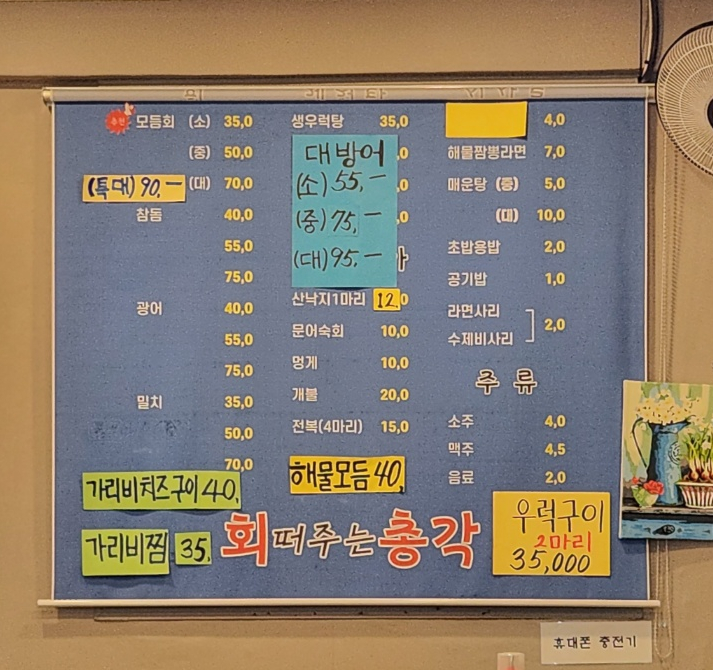 추천 모듬회 (소) 35,0
(중) 50,0
(특대) 90,- (대) 70,0
참돔 40,0
55,0
75,0
광어 40,0
55,0
75,0
밀치 35,0
50,0
70,0
가리비치즈구이 40,
가리비찜 35.
생우럭탕 35,0
대방어
(소) 55,-
(중) 75,-
(대) 95,-
산낙지1마리 12,0
문어숙회 10,0
멍게 10,0
개불 20,0
전복(4마리) 15,0
해물모듬 40,
4,0
해물짬뽕라면 7,0
매운탕 (중) 5,0
(대) 10,0
초밥용밥 2,0
공기밥 1,0
라면사리
수제비사리 2,0
주류
소주 4,0
맥주 4,5
음료 2,0
우럭구이
2마리
35,000
회떠주는총각
휴대폰 충전기